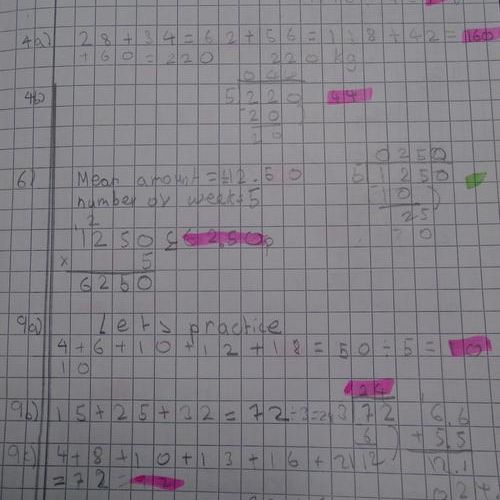 4a) 28+34=62+56=118+42=160
+60=220 220 kg
044
4b) 5 220 44
20
20
0250
6) Mean amount=£12.50 5 1250
number of week=5 10
25
2
1250 £62.50p
x 5
6250
9a) Let's practice
4+6+10+12+18=50÷5=10
10
24
9b) 15+25+32=72÷3=24 3 72 6.6
6 +5.5
9c) 4+8+10+13+16+21 12 12.1
=72=